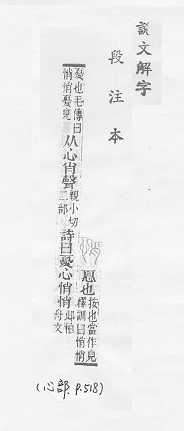 說文解字
段注本
𢝊也
按也當作皃
釋訓曰悄悄
憂也毛傳曰
悄悄憂皃
从心肖聲
親小切
二部
詩曰𢝊心悄悄
邶柏
舟文
(心部. P.518)